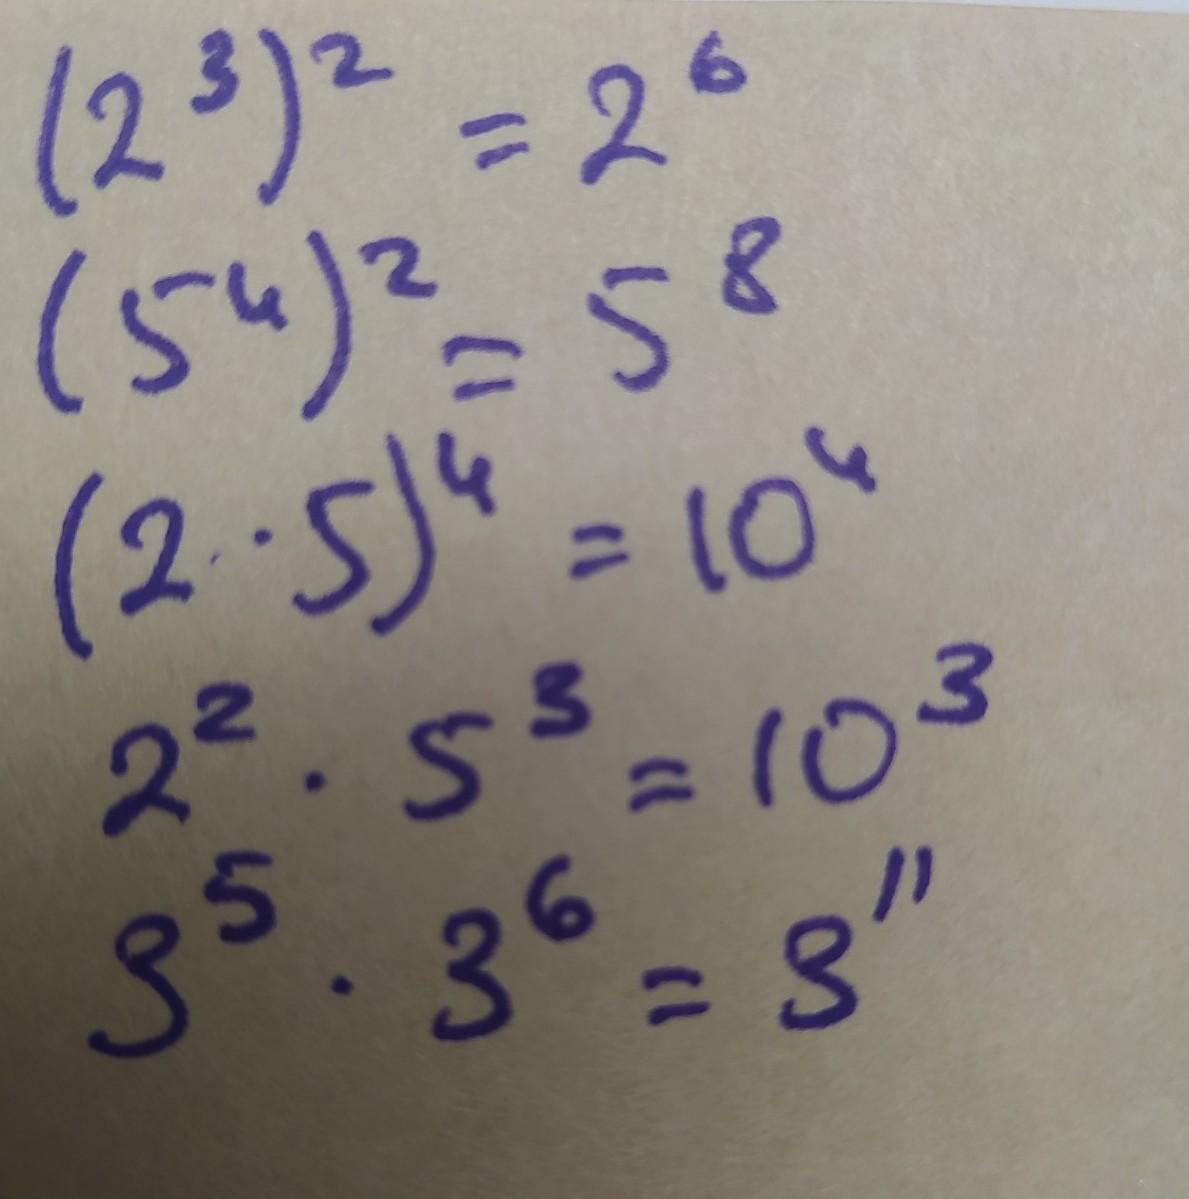 (2³)² = 2⁶
(5⁴)² = 5⁸
(2 · 5)⁴ = 10⁴
2² · 5³ = 10³
3⁵ · 3⁶ = 3¹¹